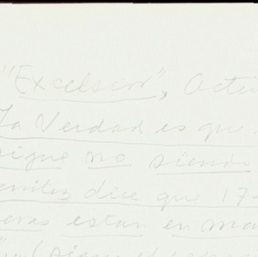 "Excelsior", Actu
La Verdad es que
sigue no siendo
enitez dice que 17-
eras estan en ma